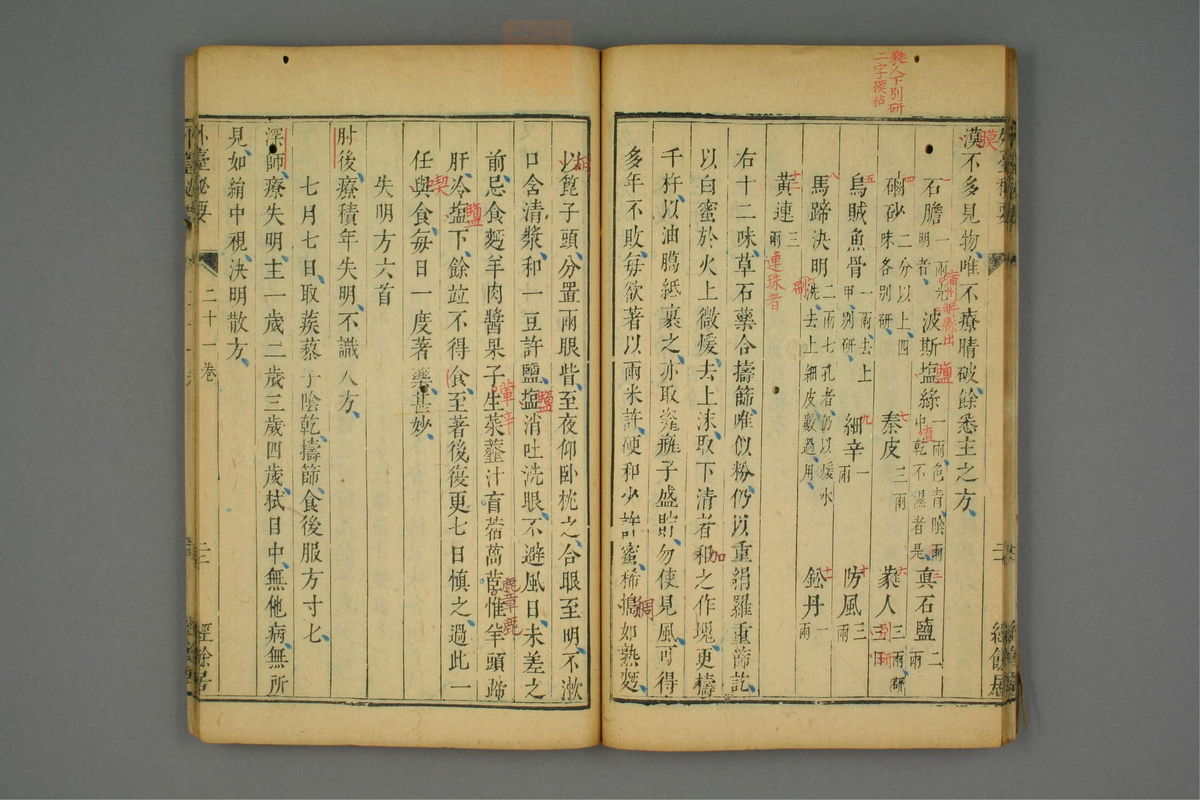 蕤人下別研
二字標祜
漠不多見物唯不療睛破餘悉主之方
石膽一兩光明者 波斯塩綠一兩色青陰雨中乾不濕者是 真石鹽二兩
硇砂二分以上四味各別研 秦皮三兩 蕤人三兩研
烏賊魚骨一兩去上甲別研 細辛一兩 防風三兩
馬蹄決明二兩七孔者仍以煖水洗去上細皮數過用 鈆丹一兩
黃連三兩
連珠者
右十二味草石藥合擣篩唯似粉仍以重絹羅重篩訖
以白蜜於火上微煖去上沫取下清者和之作塊更擣
千杵以油臈紙裹之亦取瓷瓶子盛貯勿使見風可得
多年不敗每欲著以兩米許硬和少許蜜稀搗如熟麪
以篦子頭分置兩眼眥至夜仰卧枕之合眼至明不漱
口含清漿和一豆許鹽塩消吐洗眼不避風日未差之
前忌食麪羊肉醬果子生菜虀汁
肝冷塩下餘竝不得食至著後復更七日慎之過此一
任與食每日一度著藥甚妙
失明方六首
肘後療積年失明不識人方
七月七日取蒺䔧子陰乾擣篩食後服方寸七
深師療失明主一歲二歲三歲四歲拭目中無他病無所
見如絹中視決明散方
外臺秘要
二十一卷
二十
經餘居